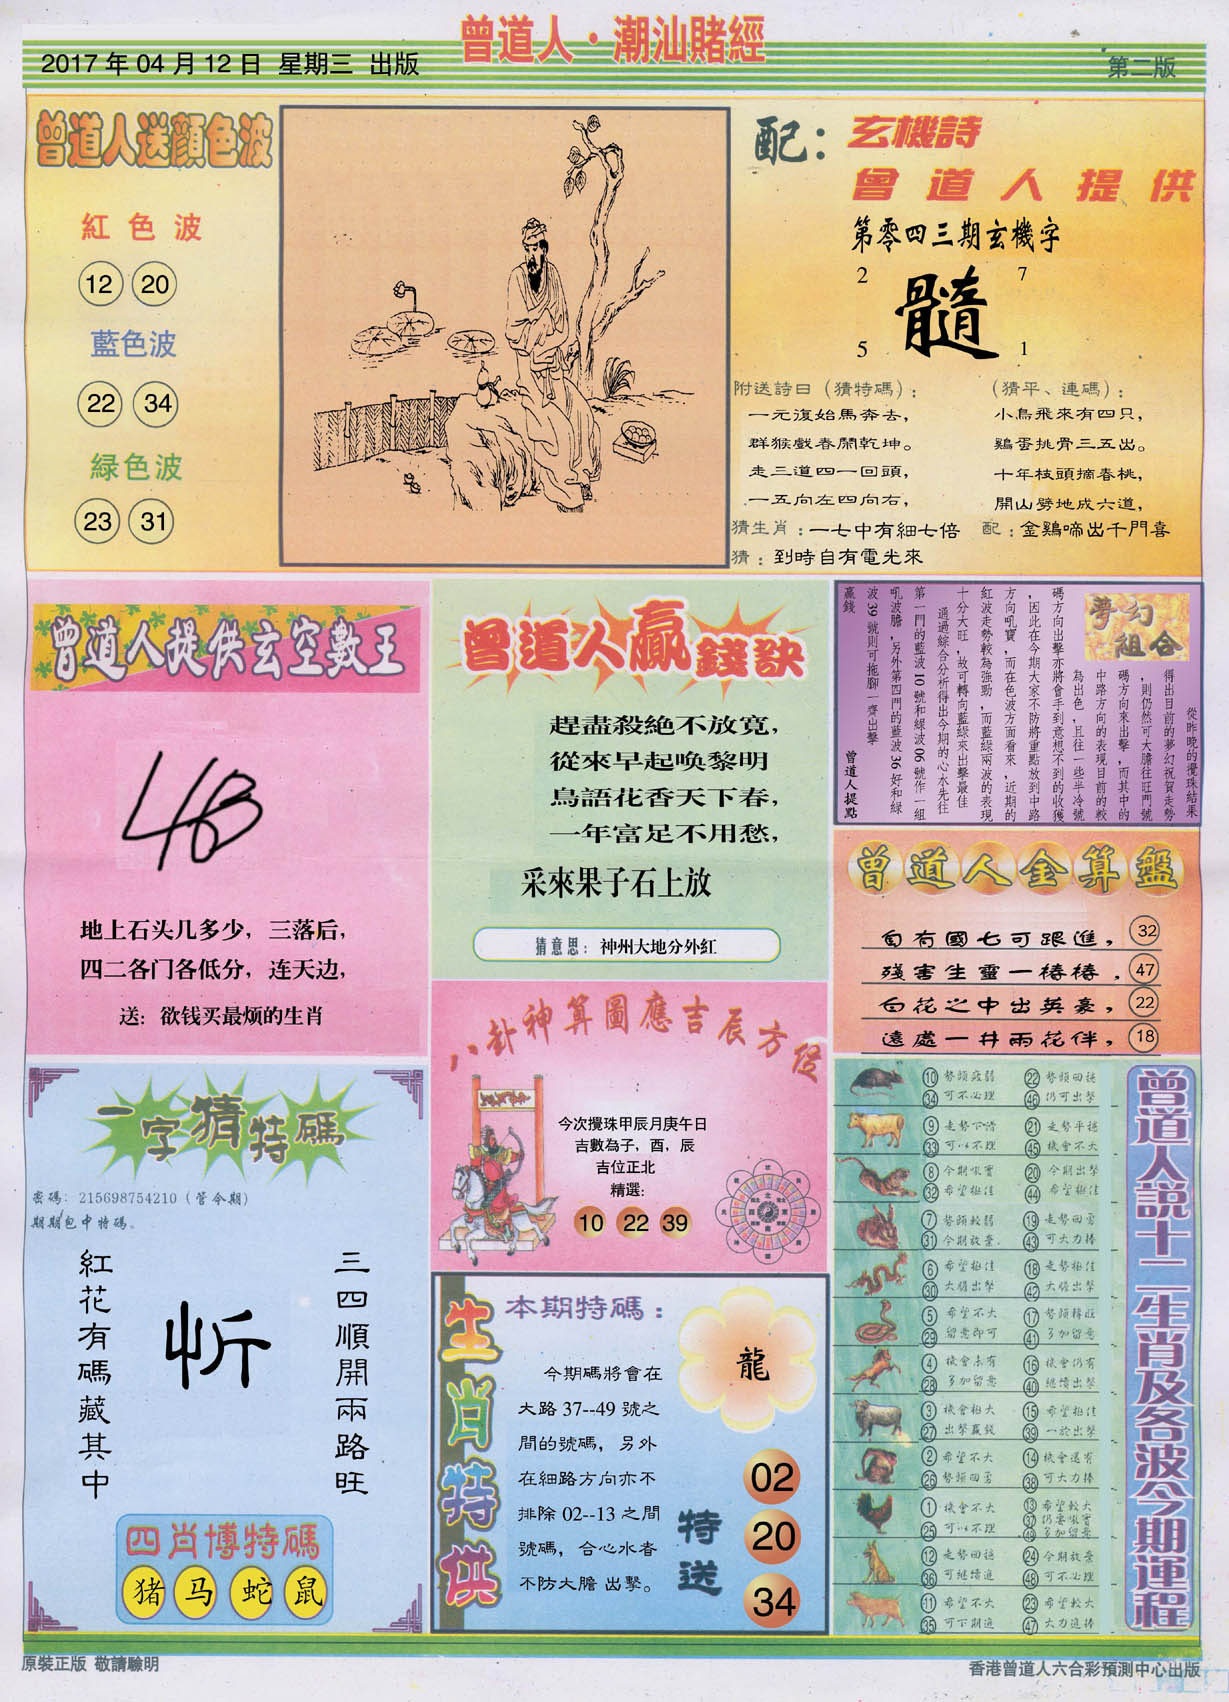 曾道人·潮汕賭經
2017 年 04 月 12 日 星期三 出版
第二版
曾道人送顏色波
紅色波
12 20
藍色波
22 34
緑色波
23 31
配：
玄機詩
曾道人提供
第零四三期玄機字
2 7
髓
5 1
附送詩曰（猜特碼）：
一元復始馬奔去，
群猴戲春鬧乾坤。
走三道四一回頭，
一五向左四向右，
（猜平、連碼）：
小鳥飛來有四只，
鷄蛋挑骨三五出。
十年枝頭摘春桃，
開山劈地成六道，
猜生肖：一七中有細七倍
配：金鷄啼出千門喜
猜：到時自有電光來
曾道人提供玄空數王
地上石头几多少，三落后，
四二各门各低分，连天边，
送：欲钱买最烦的生肖
曾道人贏錢訣
趕盡殺絶不放寬，
從來早起喚黎明
鳥語花香天下春，
一年富足不用愁，
采來果子石上放
猜意思：神州大地分外紅
夢幻
組合
從昨晚的攪珠結果
得出目前的夢幻祝賀走勢
，則仍然可大膽往旺門號
碼方向來出擊，而其中的
中路方向的表現目前的較
為出色，且往一些半冷號
碼方向出擊亦將會手到意想不到的收獲
，因此在今期大家不防將重點放到中路
方向吼寶，而在色波方面看來，近期的
紅波走勢較為強勁，而藍綠兩波的表現
十分大旺，故可轉向藍綠來出擊最佳
通過綜合分析得出今期的心水先往
第一門的藍波 10 號和綠波 06 號作一組
吼波膽，另外第四門的藍波 36 好和綠
波 39 號則可拖腳一齊出擊
贏錢
曾道人提點
曾道人金算盤
自有國七可跟進， 32
殘害生靈一樁樁． 47
白花之中出英豪， 22
遠處一井兩花伴， 18
八卦神算圖應吉辰方位
今次攪珠甲辰月庚午日
吉數為子，酉，辰
吉位正北
精選:
10 22 39
一字猜特碼
密碼：215698754210（管今期）
期期包中特碼。
三四順開兩路旺
紅花有碼藏其中
四肖博特碼
猪 马 蛇 鼠
生肖特供
本期特碼：
龍
今期碼將會在
大路 37--49 號之
間的號碼，另外
在細路方向亦不
排除 02--13 之間
號碼，合心水者
不防大膽 出擊。
特送
02
20
34
曾道人説十二生肖及各波今期運程
10 34 勢頭疲弱 可不必理 22 46 勢頭回穩 仍可出擊
9 33 走勢下滑 可以不理 21 45 走勢平穩 機會不大
8 32 今期吼實 希望極佳 20 44 今期出擊 希望極佳
7 31 勢頭較弱 今期放棄 19 43 走勢回勇 可大力捧
6 30 希望極佳 大膽出擊 18 42 走勢極佳 大膽出擊
5 29 希望不大 留意即可 17 41 勢頭轉旺 多加留意
4 28 機會未有 多加留意 16 40 機會仍有 繼續出擊
3 27 機會極大 出擊贏錢 15 39 希望極佳 一於出擊
2 26 希望不大 勢頭回勇 14 38 機會還有 可大力捧
1 25 機會不大 可以不理 13 37 49 希望較大 仍要吼實 多加留意
12 36 走勢回穩 可繼續追 24 48 今期放棄 可不必理
11 35 希望不大 可下期追 23 47 希望較大 大力追捧
原裝正版 敬請驗明
香港曾道人六合彩預測中心出版